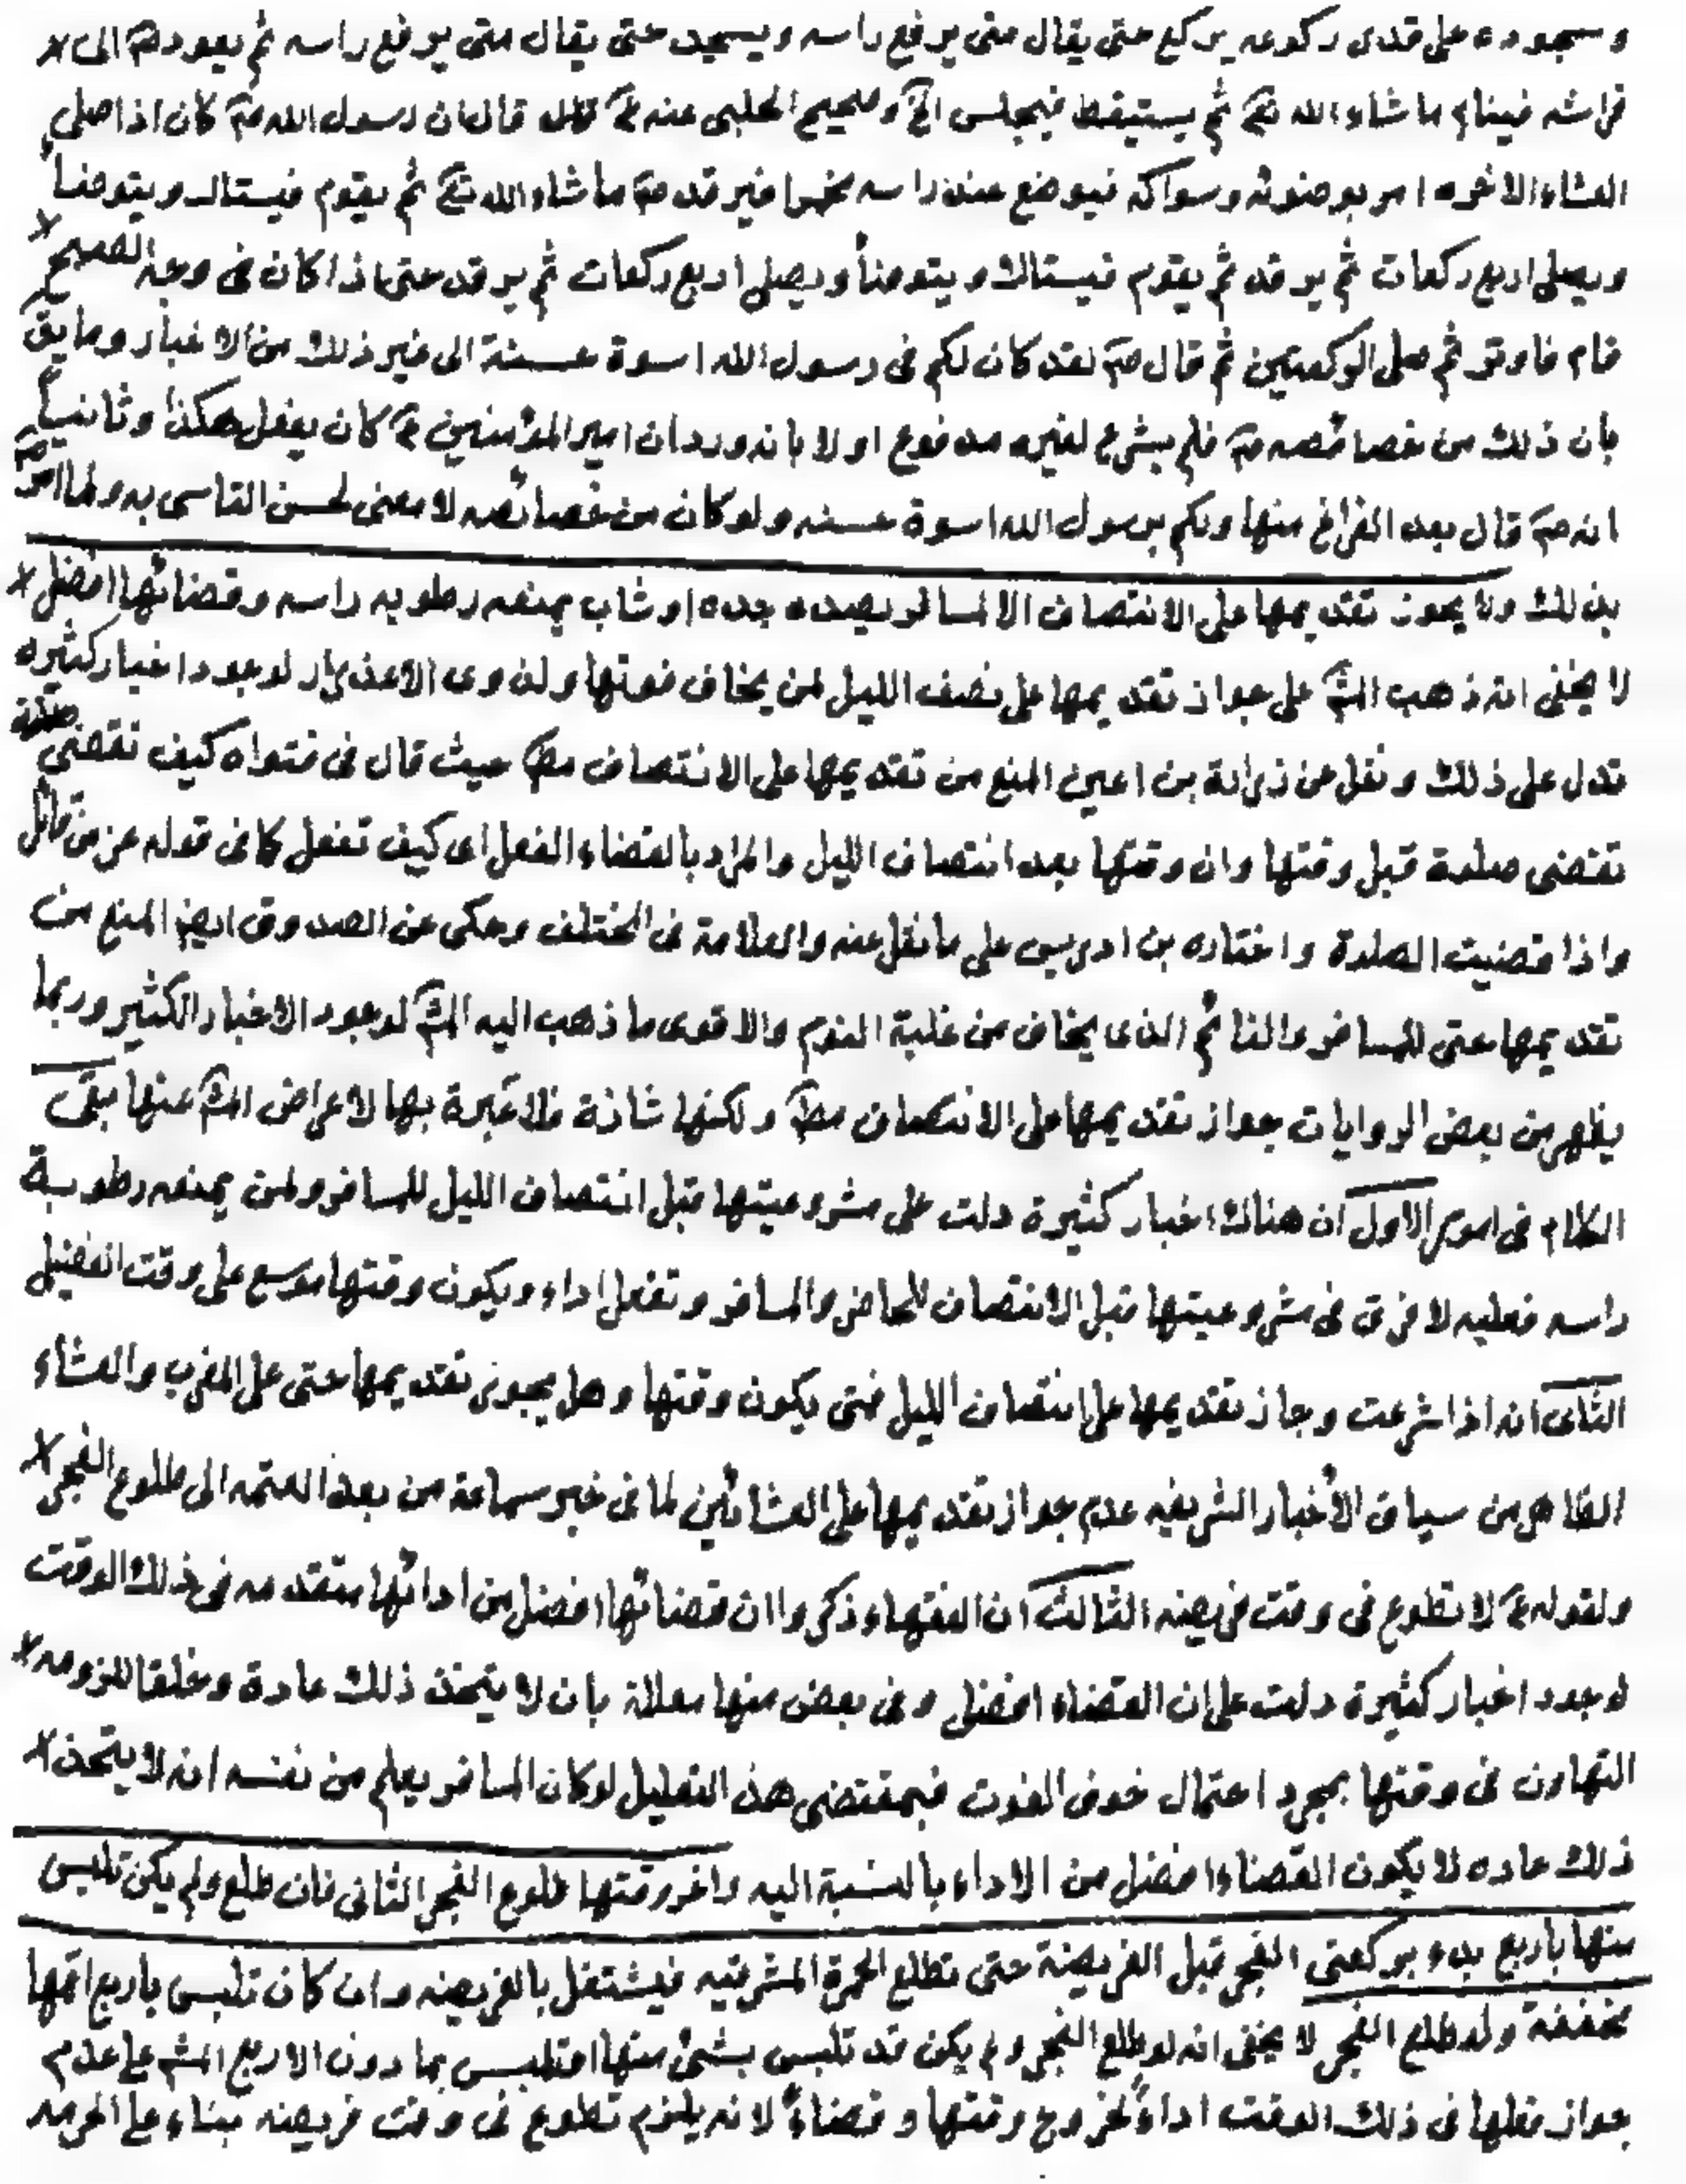 وسجوده على قدر ركوعه يركع حتى يقال متى يرفع راسه ويسجد حتى يقال متى يرفع راسه ثم يعود صۤ الى
فراشه فينام ما شاء الله تعۤ ثم يستيقظ فيجلس الخ وصحيح الحلبى عنه عۤ قال ان رسول الله صۤ كان اذا صلى
العشاء الاخره امر بوضوئه وسواكه فيوضع عند راسه مخمرا فيرقد صۤ ما شاء الله تعۤ ثم يقوم فيستاك ويتوضأ
ويصلى اربع ركعات ثم يرقد ثم يقوم فيستاك ويتوضأ ويصلى اربع ركعات ثم يرقد حتى اذا كان فى وجه الصبح
قام فاوتر ثم صلى الركعتين ثم قال صۤ لقد كان لكم فى رسول الله اسوة حسنة الى غير ذلك من الاخبار وما يقۤ
بان ذلك من خصائصه صۤ فلم يشرع لغيره مدفوع اولا بانه ورد ان امير المؤمنين عۤ كان يفعل هكذا وثانياً
انه صۤ قال بعد الفراغ منها ولكم برسول الله اسوة حسنه ولو كان من خصائصه لا معنى لحسن التاسى به ولما امر صۤ
بذلك ولا يجوز تقديمها على الانتصاف الا لمسافر يصده جده او شاب يمنعه رطوبه راسه وقضائها افضل
لا يخفى انه ذهب المشۤ على جواز تقديمها على نصف الليل لمن يخاف فوتها ولذوى الاعذار لوجود اخبار كثيره
تدل على ذلك ونقل عن زرارة بن اعين المنع من تقديمها على الانتصاف مطۤ حيث قال فى فتواه كيف تقضى صلوة
تقضى صلوة قبل وقتها وان وقتها بعد انتصاف الليل والمراد بالقضاء الفعل اى كيف تفعل كما فى قوله عز من قائل
واذا قضيت الصلوة واختاره بن ادريس على ما نقل عنه والعلامة فى المختلف وحكى عن الصدوق ايضا المنع من
تقديمها حتى للمسافر والنائم الذى يخاف من غلبة النوم والاقوى ما ذهب اليه المشۤ لوجود الاخبار الكثير وربما
يظهر من بعض الروايات جواز تقديمها على الانتصاف مطۤ ولكنها شاذة فلا عبرة بها لاعراض المشۤ عنها بقى
الكلام فى امور الاول ان هناك اخبار كثيرة دلت على مشروعيتها قبل انتصاف الليل للمسافر ولمن يمنعه رطوبة
راسه فعليه لا فرق فى مشروعيتها قبل الانتصاف للحاضر والمسافر وتفعل اداء ويكون وقتها موسع على وقت الفضيل
الثانى انه اذا شرعت وجاز تقديمها على انتصاف الليل فمتى يكون وقتها وهل يجوز تقديمها حتى على المغرب والعشاء
الظاهر من سياق الأخبار الشريفه عدم جواز تقديمها على العشائين لما فى خبر سماعة من بعد العتمه الى طلوع الفجر
ولقوله عۤ لا تطوع فى وقت فريضه الثالث ان الفقهاء ذكروا ان قضائها افضل من ادائها متقدمه فى ذلك الوقت
لوجود اخبار كثيرة دلت على ان القضاء افضل وفى بعض منها معللة بان لا يتخذ ذلك عادة وخلقا للزومه
التهاون فى وقتها بمجرد احتمال خوف الفوت فبمقتضى هذ التعليل لو كان المسافر يعلم من نفسه انه لا يتخذ
ذلك عاده لا يكون القضاء افضل من الاداء بالنسبة اليه واخر وقتها طلوع الفجر الثانى فان طلع ولم يكن تلبس
منها باربع بدء بركعتى الفجر قبل الفريضة حتى تطلع الحمرة المشرقيه فيشتغل بالفريضه وان كان تلبس باربع اتمها
مخففة ولو طلع الفجر لا يخفى انه لو طلع الفجر ولم يكن قد تلبس بشئ منها او تلبس بما دون الاربع المشۤ على عدم
جواز فعلها فى ذلك الوقت اداءً لخروج وقتها وقضاءً لانه يلزم تطوع فى وقت فريضه بناء على الحرمه